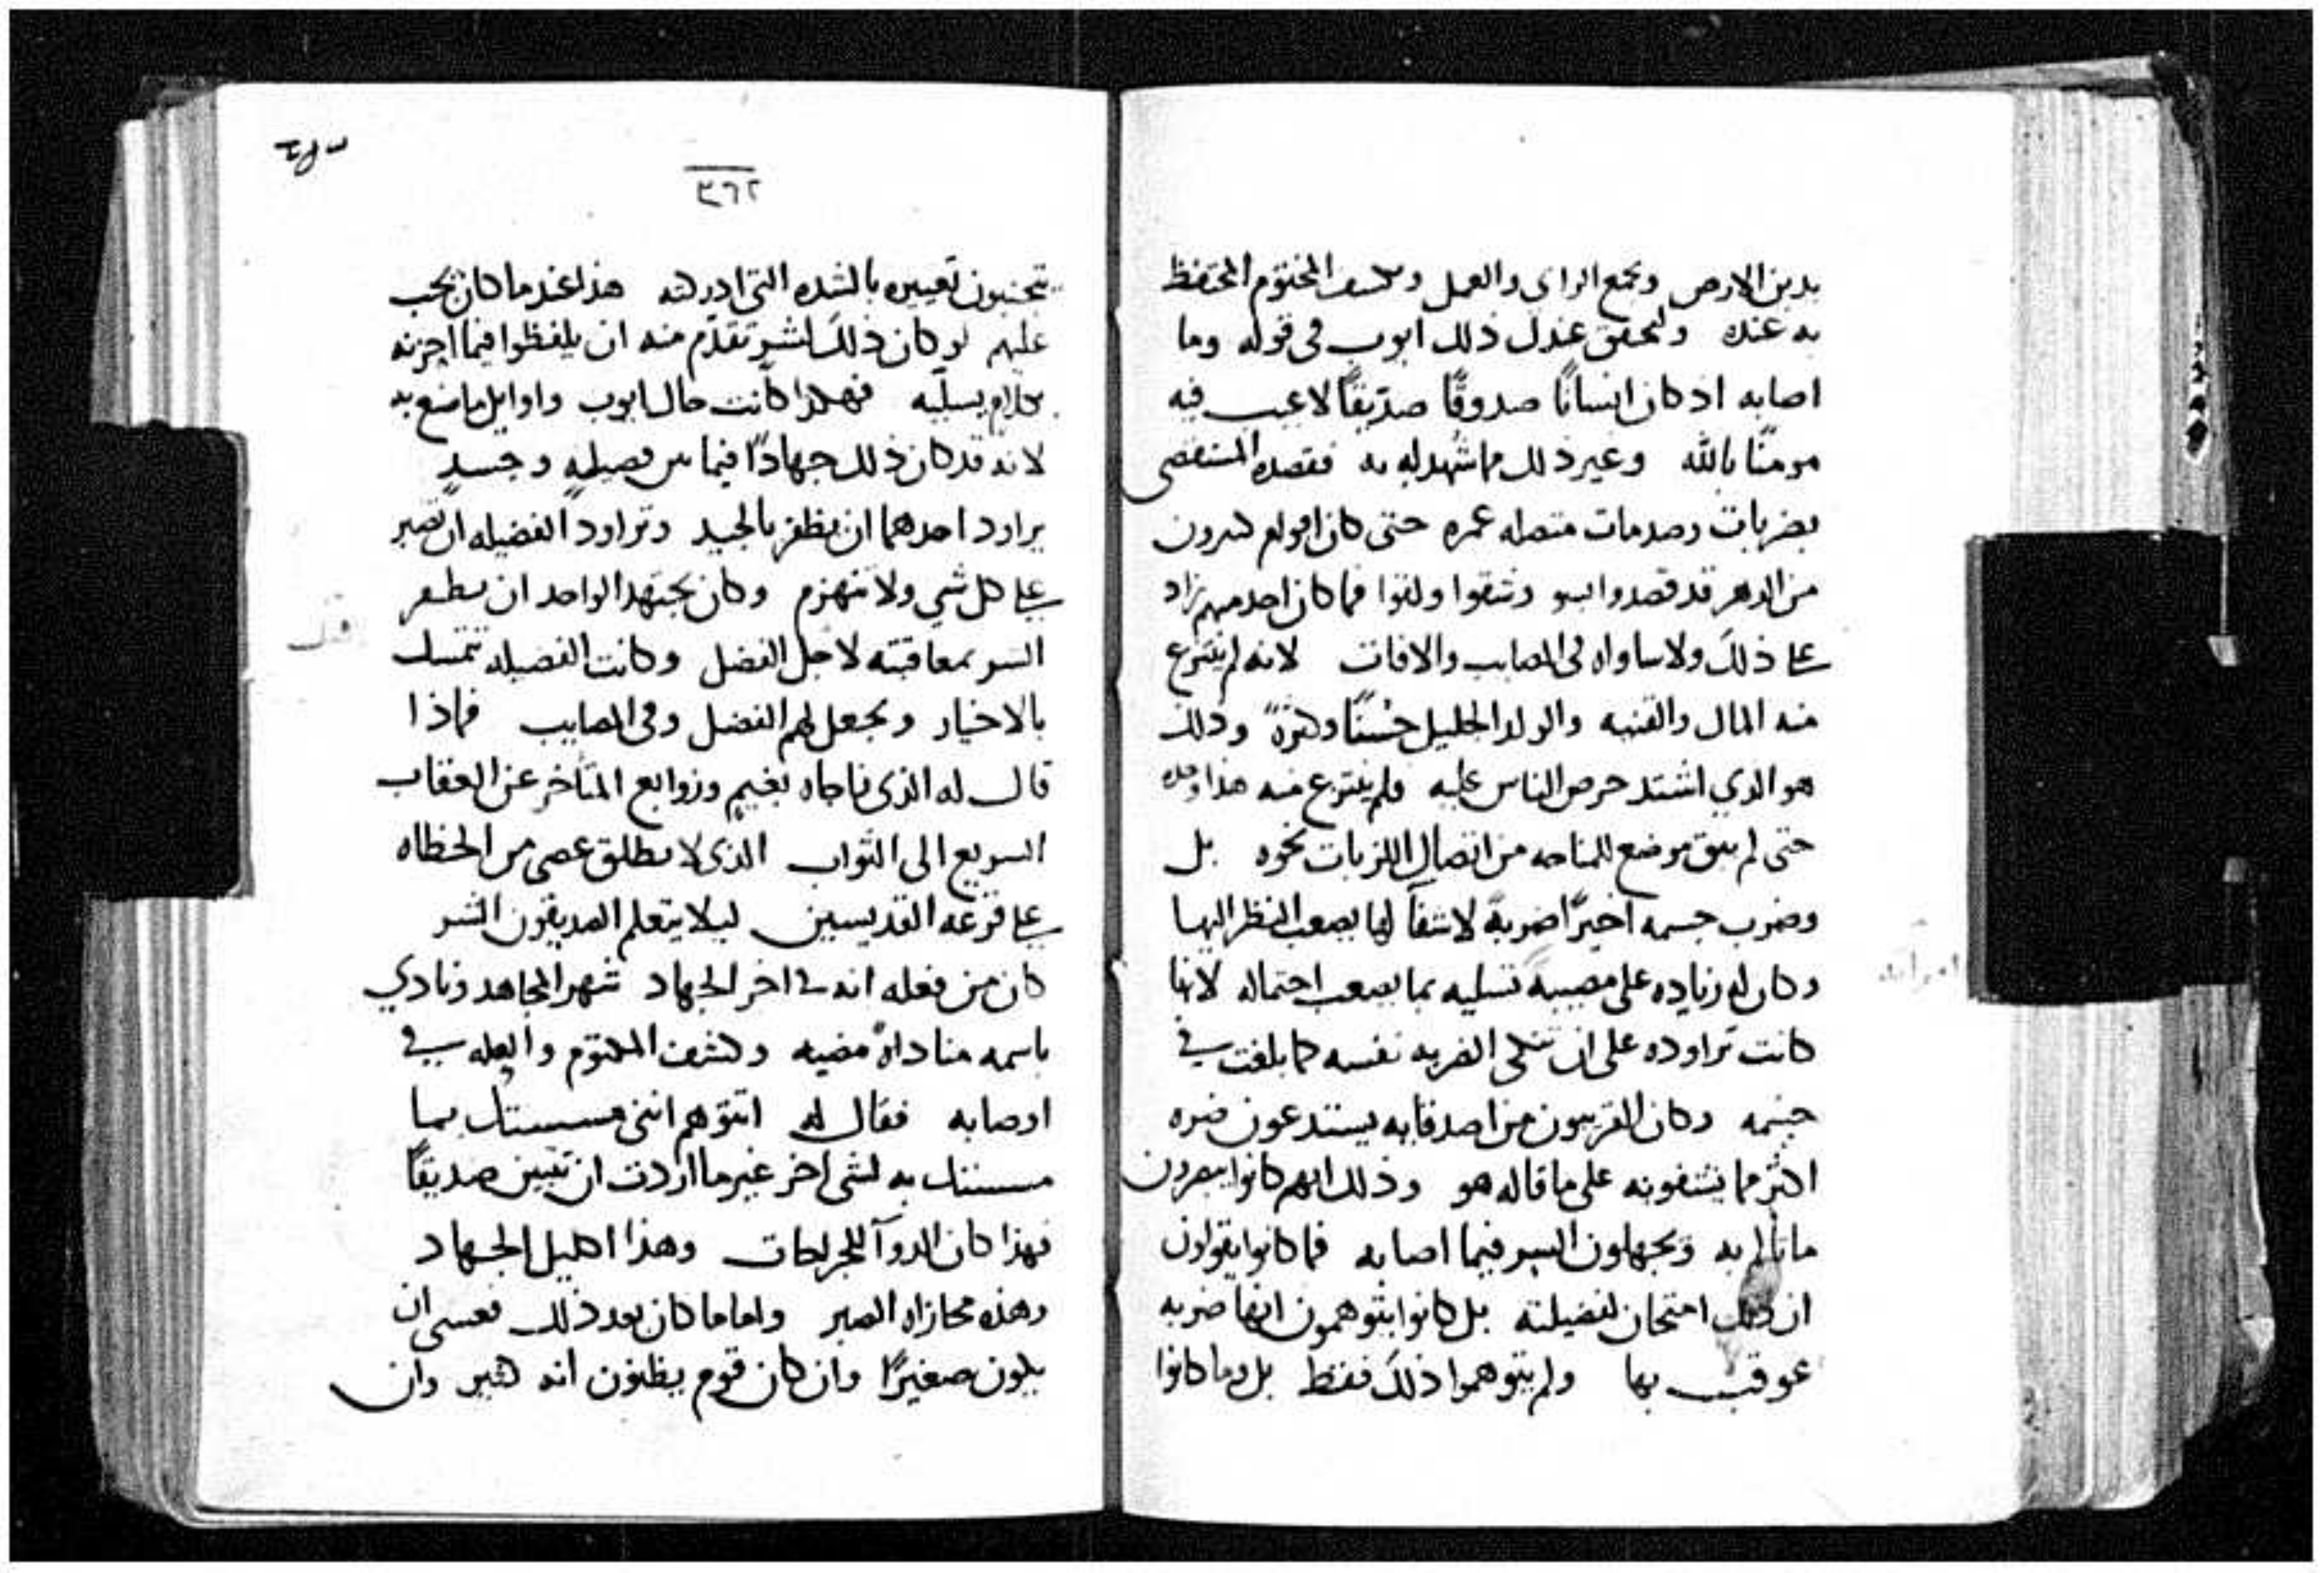 يدين الارض ويجمع الراي والعمل ويكشف المختوم المحتفظ
به عنده وليحقق عندك ذلك ايوب في قوله وما
اصابه اذ كان انسانًا صدوقًا صديقًا لا عيب فيه
مومنًا بالله وغير ذلك مما شُهد له به فقصده المستقصى
بضربات وصدمات متصله عمره حتى كان اقوام كثيرون
من الدهر قد قصدوا وشقوا ولقوا فما كان احد منهم زاد
على ذلك ولا ساواه فى المصايب والافات لانه لم ينتزع
منه المال والقنيه والولد الجليل حُسنًا وكثرةً وذلك
هو الدي اشتد حرص الناس عليه فلم ينتزع منه هذا وحده
حتى لم يبق موضع للمناحه من اتصال اللزبات نحوه بل
وضرب جسمه اخيرًا ضربةً لا شفآ لها يصعب النظر اليها
وكان له زياده على مصيبته تسليه بما يصعب احتماله لانها
كانت تراوده على ان تنكى الضربه نفسه كما بلغت في
جسمه وكان القريبون من اصدقايه يستدعون ضره
اكثر مما يشفونه على ما قاله هو وذلك انهم كانوا يبصرون
ما نالم به ويجهلون السر فيما اصابه فما كانوا يقولون
ان ذلك امتحان لفضيلته بل كانوا يتوهمون انها ضربه
عوقب بها ولم يتوهموا ذلك فقط بل وما كانوا
٣٦٢
يتجنبون تعييره بالشده التى ادركته هذا عند ما كان يجب
عليهم لو كان ذلك لشرٍ تقدّم منه ان يلفظوا فيما احزنه
بكلام يسليه فهكذا كانت حال ايوب واوايل ما صنع به
لانه قد كان ذلك جهادًا فيما بين فضيلةٍ وحسدٍ
يراود احدهما ان يظفر بالجيد وتراود الفضيله ان تصبر
على كل شي ولا تنهزم وكان يجتهد الواحد ان يظفر
السر بمعاقبته لاجل الفضل وكانت الفضيله تتمسك
بالاخيار ويجعل لهم الفضل وفى المصايب فماذا
قال له الذى ناجاه بغيم وزوابع المتاخر عن العقاب
السريع الى الثواب الذى لا يطلق عصى من الخطاه
على قرعه القديسين ليلا يتعلم الصديقون الشر
كان من فعله انه في اخر الجهاد شهر المجاهد ونادي
باسمه مناداهً مضيه وكشف المكتوم والعله في
اوصابه فقال له اتتوهم اننى مسستك بما
مسستك به لشى اخر غير ما اردت ان تتبين صديقًا
فهذا كان الدوآ للجراحات وهذا اكليل الجهاد
وهذه مجازاه الصبر واما ما كان بعد ذلك فعسى ان
يكون صغيرًا وان كان قوم يظنون انه كبير وان